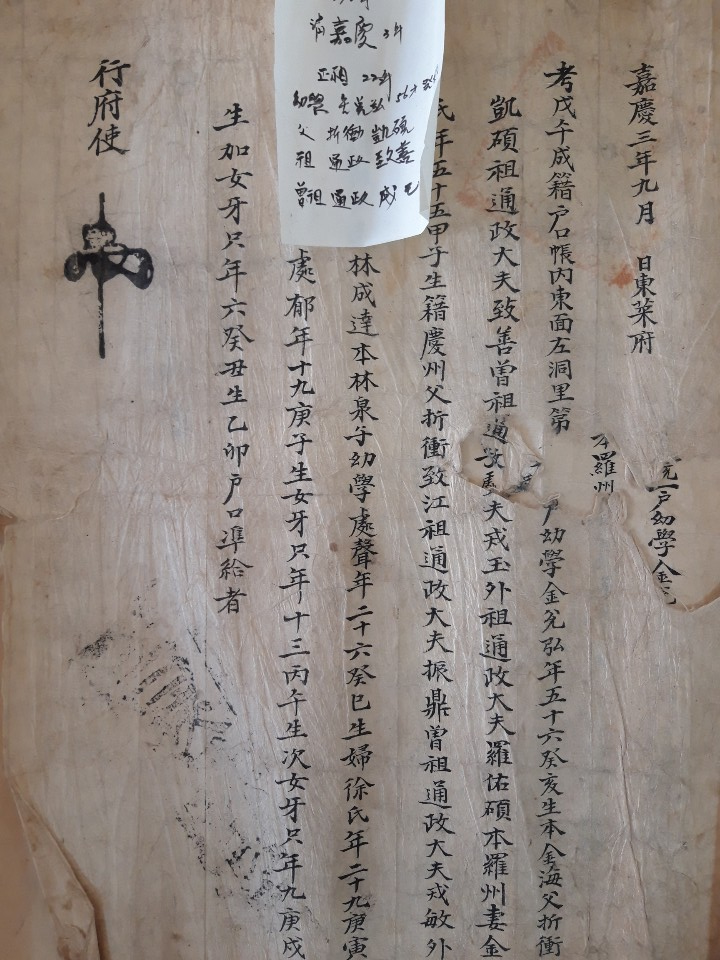 嘉慶三年九月 日東萊府
考戊午成籍戶口帳內東面左洞里第
統一戶幼學金兊
本羅州
戶幼學金兊弘年五十六癸亥生本金海父折衝
凱碩祖通政大夫致善曾祖通政大夫戎玉外祖通政大夫羅佑碩本羅州妻金
氏年五十五甲子生籍慶州父折衝致江祖通政大夫振鼎曾祖通政大夫戎敏外
林成達本林泉子幼學處聲年二十六癸巳生婦徐氏年二十九庚寅
處郁年十九庚子生女牙只年十三丙午生次女牙只年九庚戌
生加女牙只年六癸丑生乙卯戶口準給者
行府使
清 嘉慶 3年
正祖 22年
幼學 56才
父 折衝 凱碩
祖 通政 致善
曾祖 通政 戎